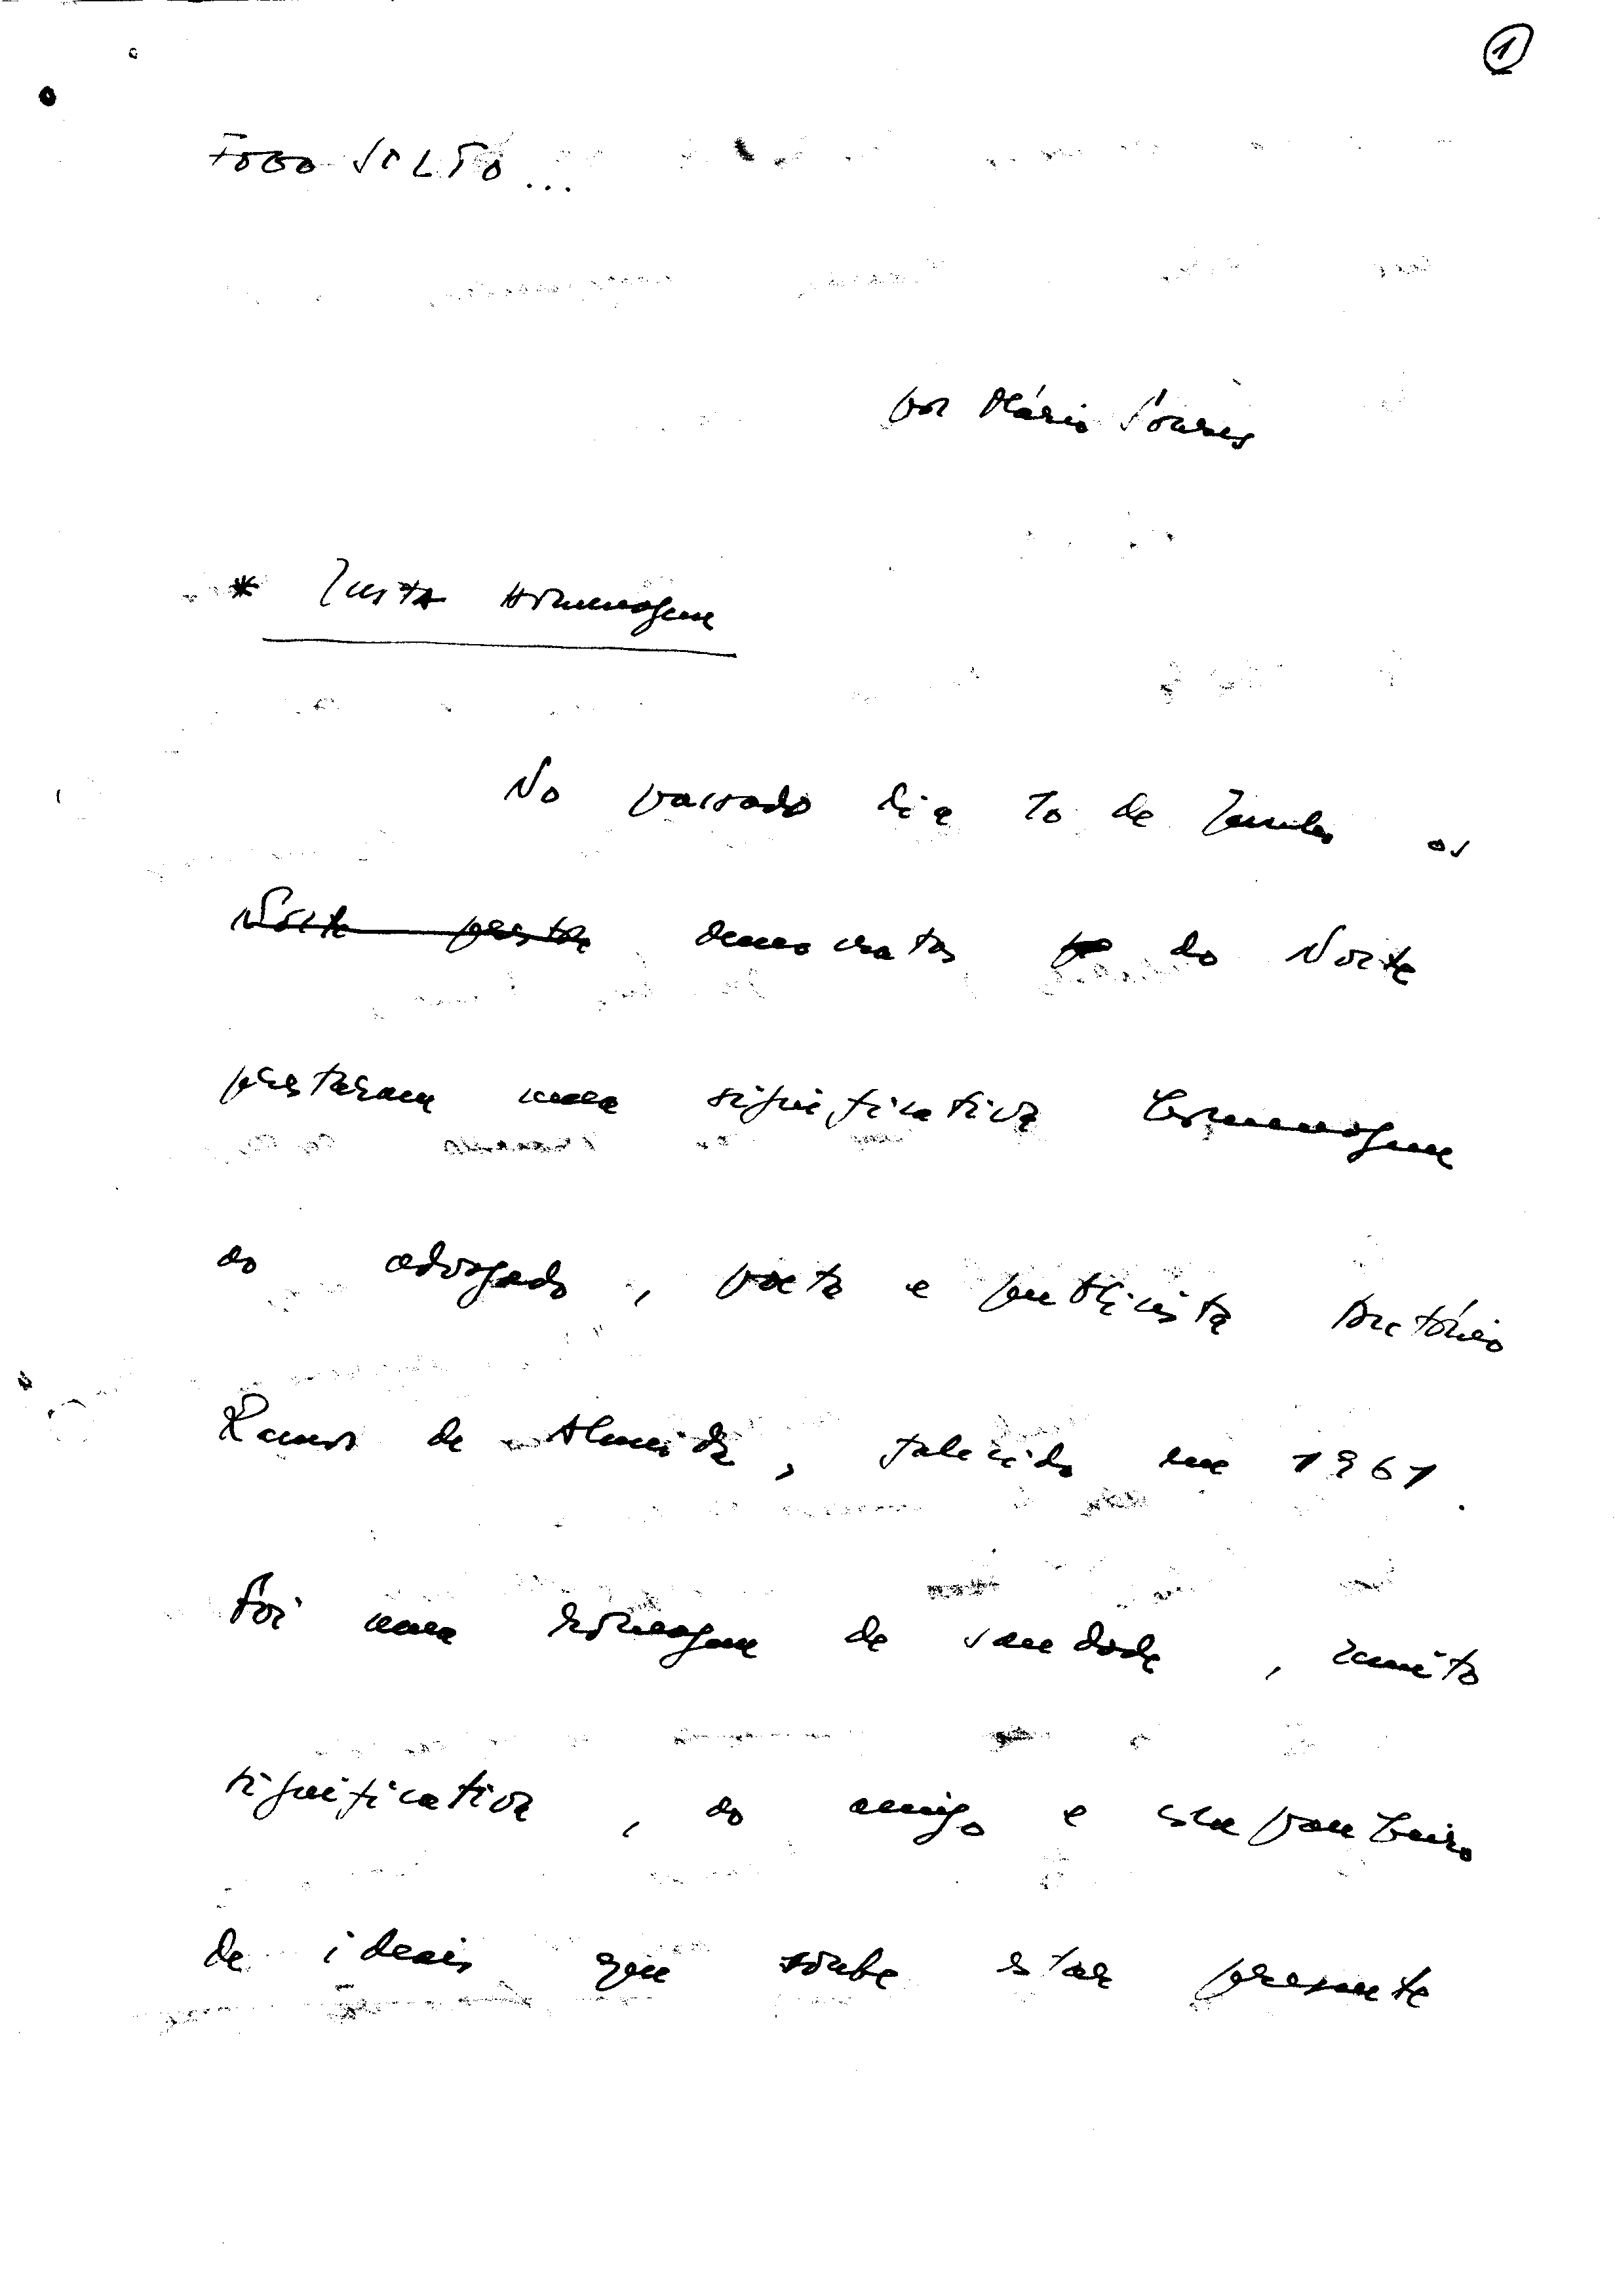 1
FOGO SOLTO...
por Mário Soares
* Justa homenagem
No passado dia 10 de Junho os
Norte presta democratas do Norte
prestaram uma significativa homenagem
ao advogado, poeta e publicista António
Ramos de Almeida, falecido em 1961.
Foi uma homenagem de saudade, muito
significativa, ao amigo e companheiro
de ideais que soube estar presente